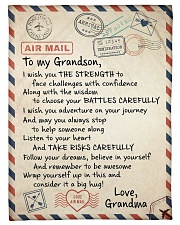 AIR MAIL
To my Grandson,
I wish you THE STRENGTH to
face challenges with confidence
Along with the wisdom
to choose your BATTLES CAREFULLY
I wish you adventure on your journey
And may you always stop
to help someone along
Listen to your heart
And TAKE RISKS CAREFULLY
Follow your dreams, believe in yourself
And remember to be awesome
Wrap yourself up in this and
consider it a big hug!
Love,
Grandma
AIR MAIL